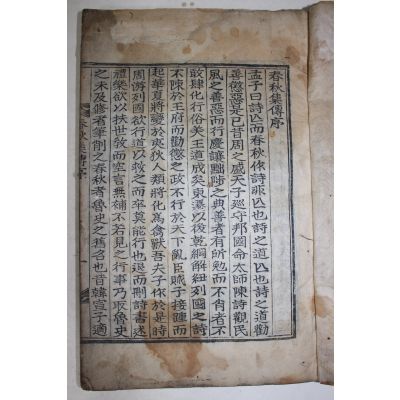 春秋集傳序
孟子曰詩亡而春秋作詩非亡也詩之道亡也詩之道勸
善懲惡是已昔周之盛天子巡守邦國命太師陳詩觀民
風之善惡而行慶讓黜陟之典善者有所勉而不肖者不
敢肆化行俗美王道成矣東遷以後乾綱解紐列國之詩
不陳於王府而勸懲之政不行於天下亂臣賊子接踵而
起華夏將變於夷狄人類將化爲禽獸吾夫子作於是時
周游列國欲行道以救之而卒莫能行也退而刪詩書述
禮樂欲以扶世敎而空言無補不若見之行事乃取魯史
之未及修者筆削之春秋者魯史之舊名也昔韓宣子適